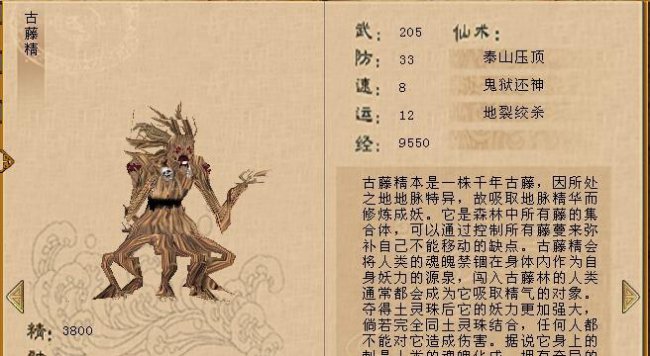 古藤精
武： 205
防： 33
速： 8
运： 12
经： 9550
仙术：
泰山压顶
鬼狱还神
地裂绞杀
古藤精本是一株千年古藤，因所处
之地地脉特异，故吸取地脉精华而
修炼成妖。它是森林中所有藤的集
合体，可以通过控制所有藤蔓来弥
补自己不能移动的缺点。古藤精会
将人类的魂魄禁锢在身体内作为自
身妖力的源泉，闯入古藤林的人类
通常都会成为它吸取精气的对象。
夺得土灵珠后它的妖力更加强大，
倘若完全同土灵珠结合，任何人都
不能对它造成伤害。据说它身上的
精： 3800